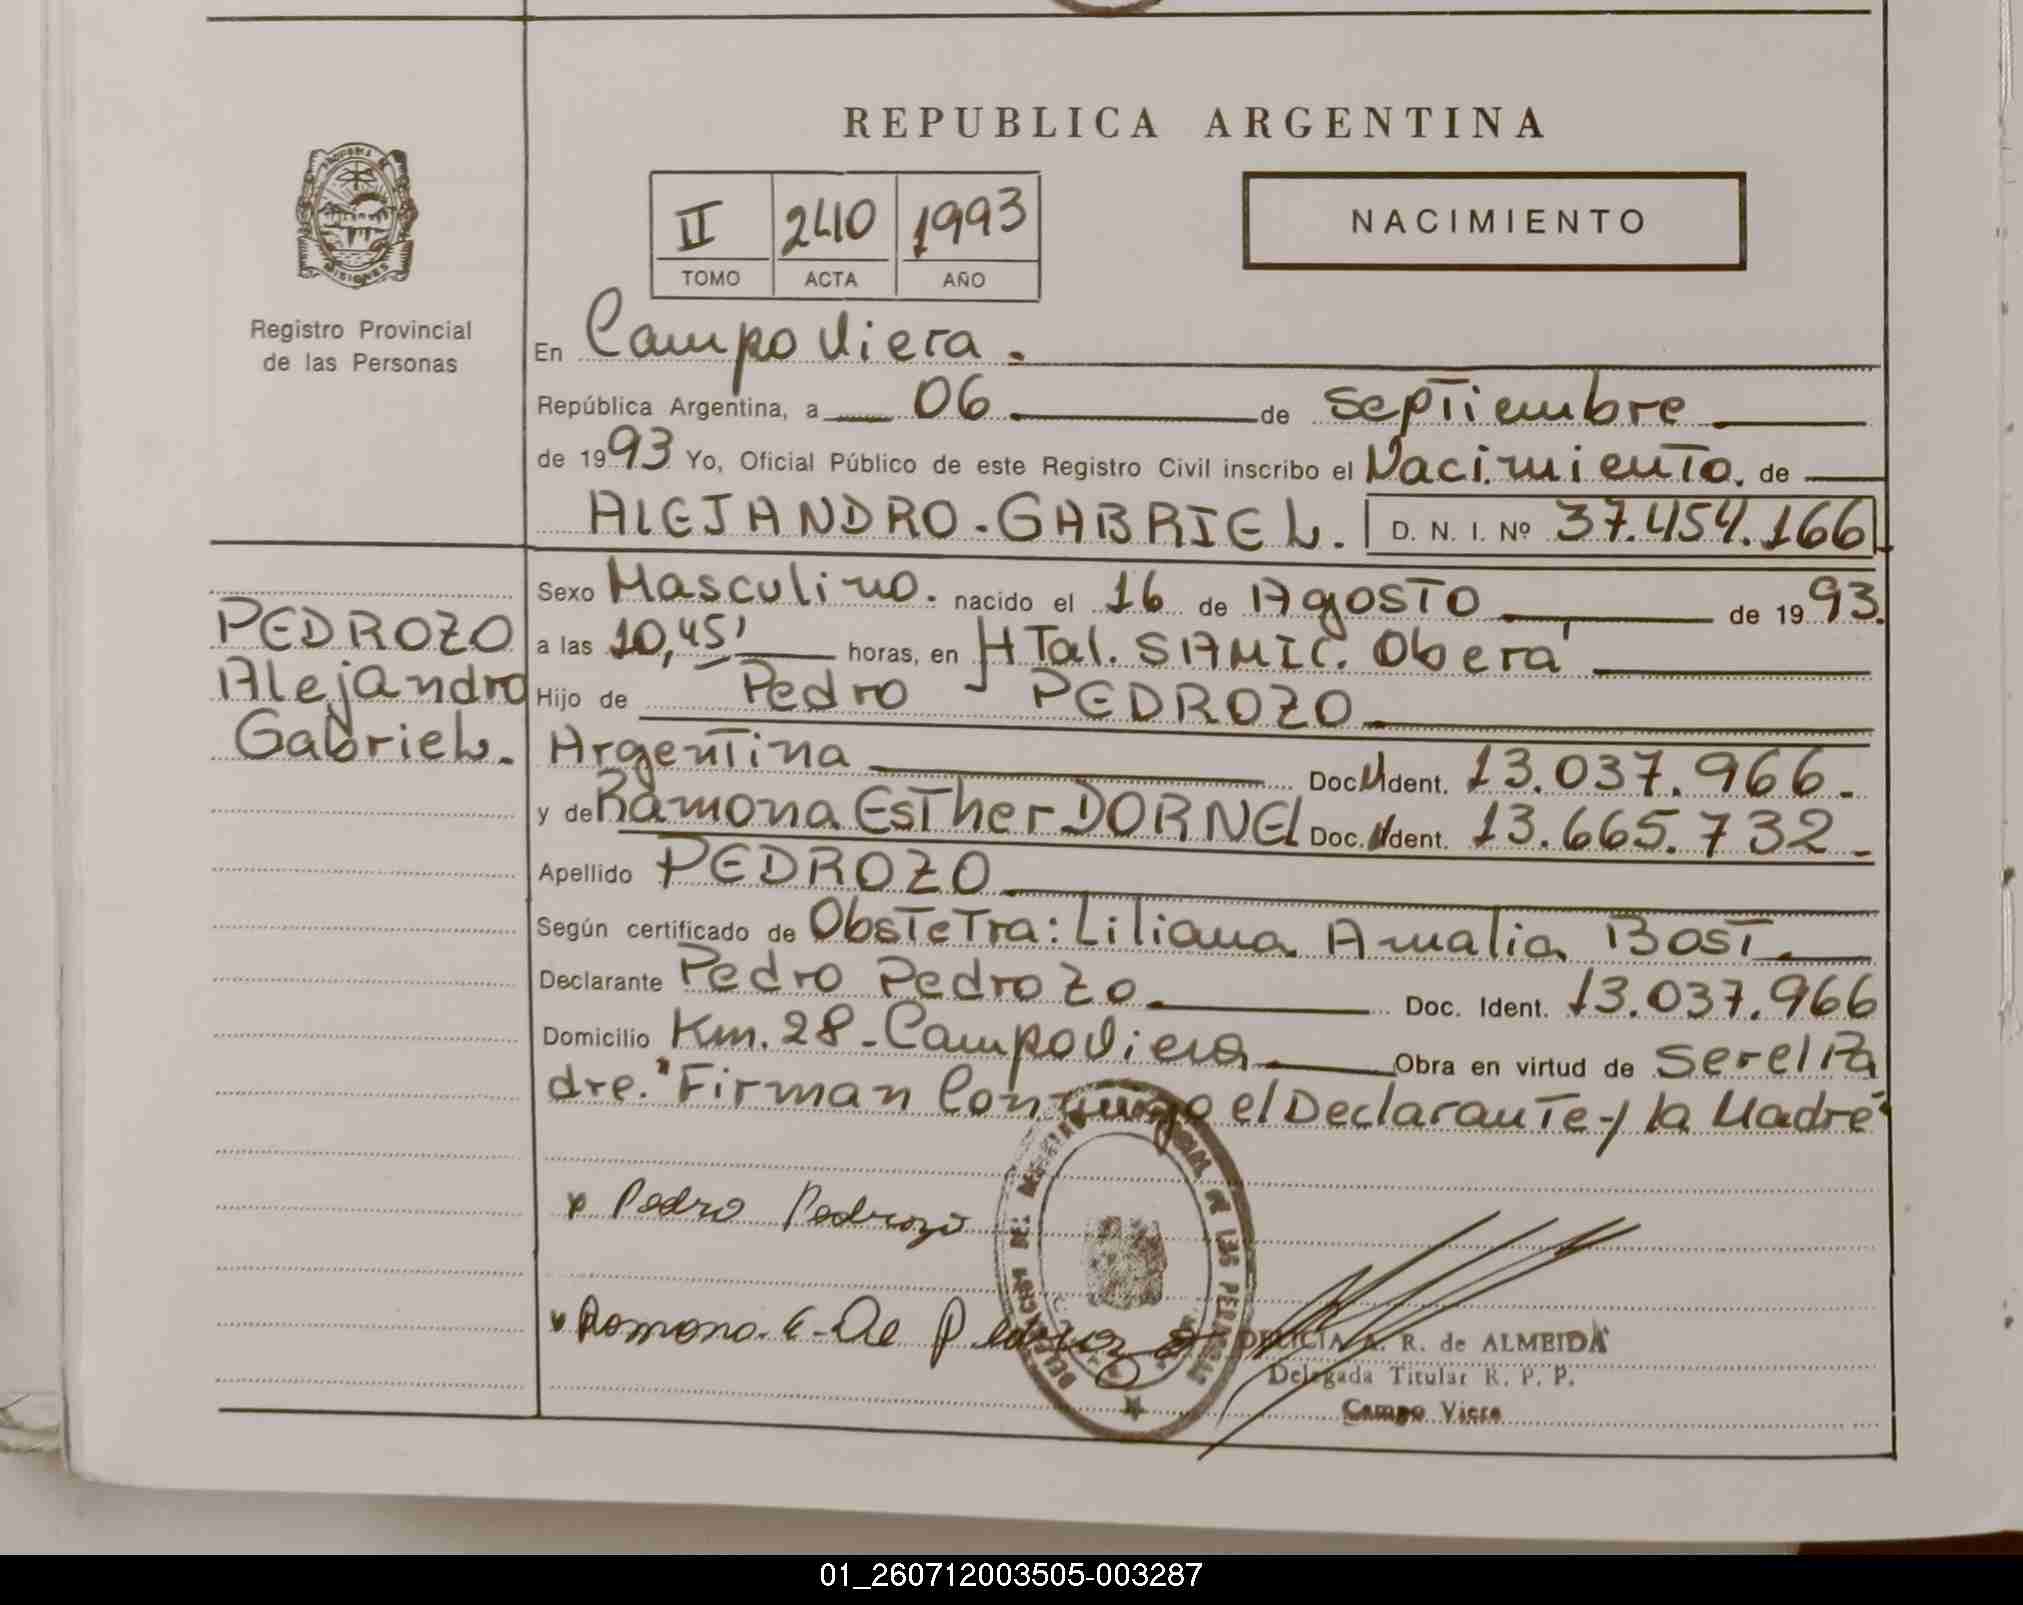 REPUBLICA ARGENTINA
II 240 1993
TOMO ACTA AÑO
NACIMIENTO
MISIONES
Registro Provincial
de las Personas
En Campo Viera.
República Argentina, a 06 de septiembre
de 1993 Yo, Oficial Público de este Registro Civil inscribo el Nacimiento. de
ALEJANDRO-GABRIEL. D. N. I. Nº 37.454.166
PEDROZO
Alejandro
Gabriel.
Sexo Masculino. nacido el 16 de Agosto de 1993.
a las 10,45' horas, en HTal. SAMIC. Oberá
Hijo de Pedro PEDROZO
Argentina Doc. Ident. 13.037.966.
y de Ramona Esther DORNEL Doc. Ident. 13.665.732
Apellido PEDROZO
Según certificado de Obstetra: Liliana Amalia Bost.
Declarante Pedro Pedrozo Doc. Ident. 13.037.966
Domicilio Km. 28-Campo Viera Obra en virtud de ser el Pa
dre. "Firman Conmigo el Declarante y la Madre"
Pedro Pedrozo
Ramona. E-De Pedrozo
DELEGACION DEL REGISTRO PROVINCIAL DE LAS PERSONAS
DELICIA A. R. de ALMEIDA
Delegada Titular R. P. P.
Campo Viera
01_260712003505-003287